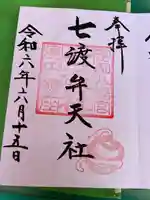 奉拝
七渡弁天社
令和六年六月十五日